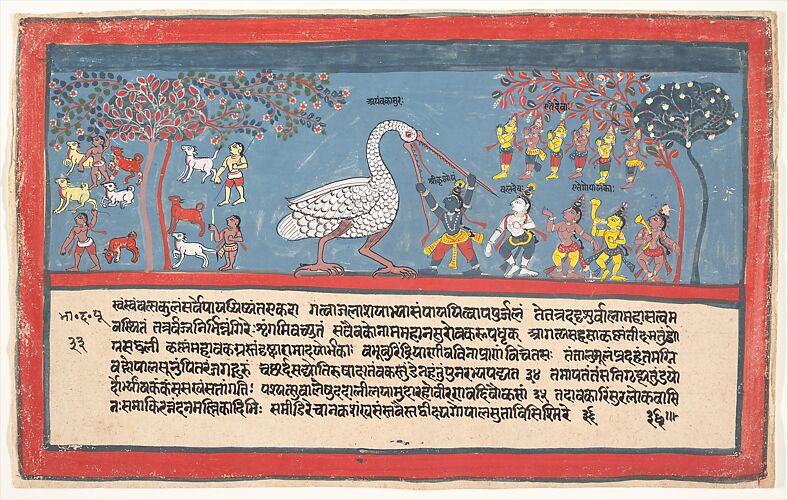 अयंबकासुरः
एतेदेवाः
श्रीकृष्णोयं
बलदेवः
एतेगोपालकाः
भा॰द॰पू
३३
स्वंस्वंवत्सकुलंसर्वेपाययिष्यंतएकदा गत्वाजलाशयाभ्यासंपाययित्वापपुर्जलं तेतत्रददृशुर्बालामहासत्वम
वस्थितं तत्रसुर्वज्रनिर्भिन्नंगिरेःशृंगमिवच्युतं सवैबकोनाममहानसुरोबकरूपधृक् आगत्यसहसाकृष्णंतीक्ष्णतुंडो
ग्रसद्बली कृष्णंमहाबकग्रस्तंदृष्ट्वारामादयोर्भकाः बभूवुरिंद्रियाणीवविनाप्राणंविचेतसः तंतालुमूलंप्रदहंतमग्नि
वद्गोपालसूनुंपितरंजगद्गुरोः चच्छर्दसद्योतिरुषाक्षतंबकस्तुंडेनहंतुंपुनरभ्यपद्यत ३४ तमापतंतंसनिगृह्यतुंडयो
र्दोर्भ्यांबकंकंससखंसतांपतिः पश्यत्सुबालेषुददारलीलयामुदावहोवीरणवद्दिवौकसां ३५ तदाबकारिंसुरलोकवासि
नःसमाकिरन्नंदनमल्लिकादिभिः समीडिरेचानकशंखसंस्तवैस्तद्वीक्ष्यगोपालसुताविसिस्मिरे ३६ ३६॥